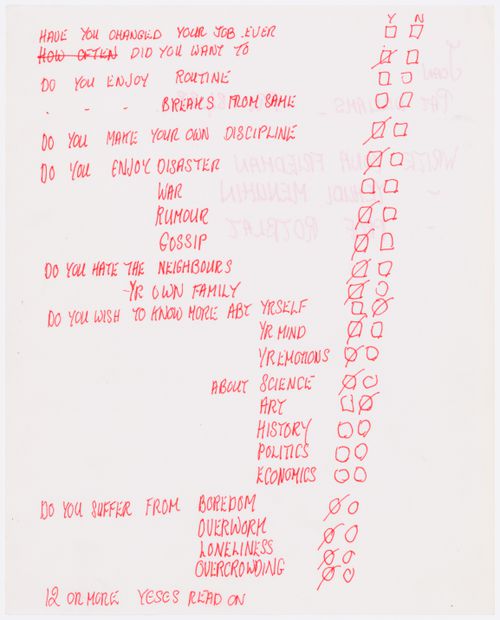 Y N
HAVE YOU CHANGED YOUR JOB EVER
HOW OFTEN DID YOU WANT TO
DO YOU ENJOY ROUTINE
" " " BREAKS FROM SAME
DO YOU MAKE YOUR OWN DISCIPLINE
DO YOU ENJOY DISASTER
WAR
RUMOUR
GOSSIP
DO YOU HATE THE NEIGHBOURS
YR OWN FAMILY
DO YOU WISH TO KNOW MORE ABT YRSELF
YR MIND
YR EMOTIONS
ABOUT SCIENCE
ART
HISTORY
POLITICS
ECONOMICS
DO YOU SUFFER FROM BOREDOM
OVERWORK
LONELINESS
OVERCROWDING
12 OR MORE YESES READ ON